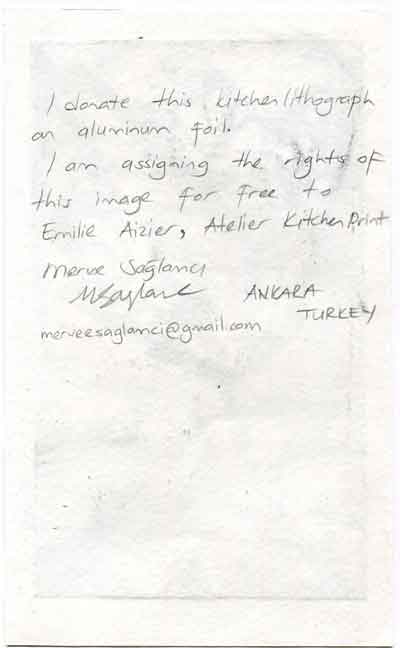 I donate this kitchen lithograph
on aluminum foil.
I am assigning the rights of
this image for free to
Emilie Aizier, Atelier Kitchen Print
Merve Sağlancı
MSaglancı ANKARA
TURKEY
merveesaglanci@gmail.com